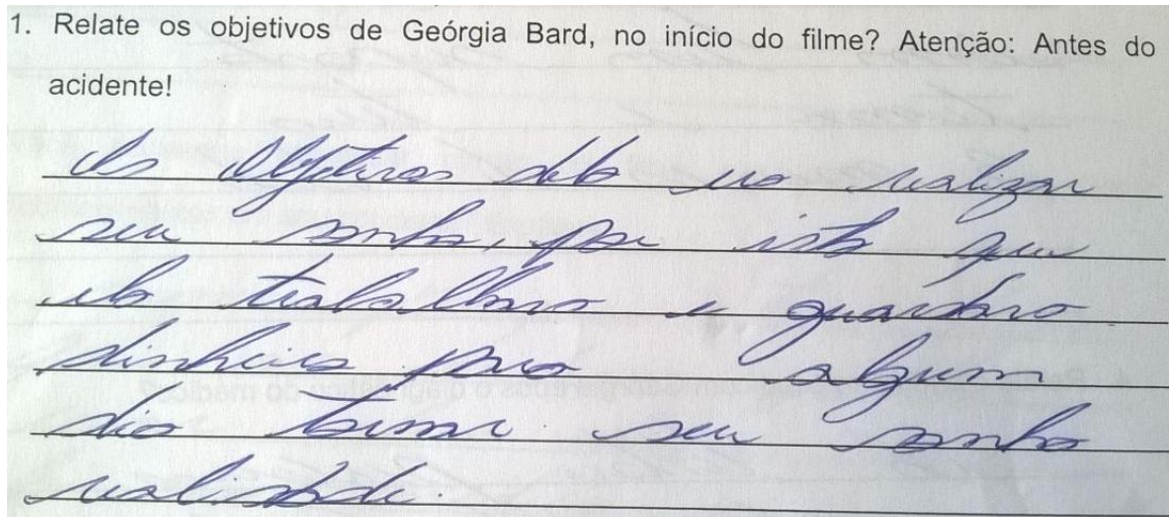 1. Relate os objetivos de Geórgia Bard, no início do filme? Atenção: Antes do
acidente!
Os Objetivos dela era realizar
seu sonho, por isto que
ela trabalhava e guardava
dinheiro para algum
dia tornar seu sonho
realidade.